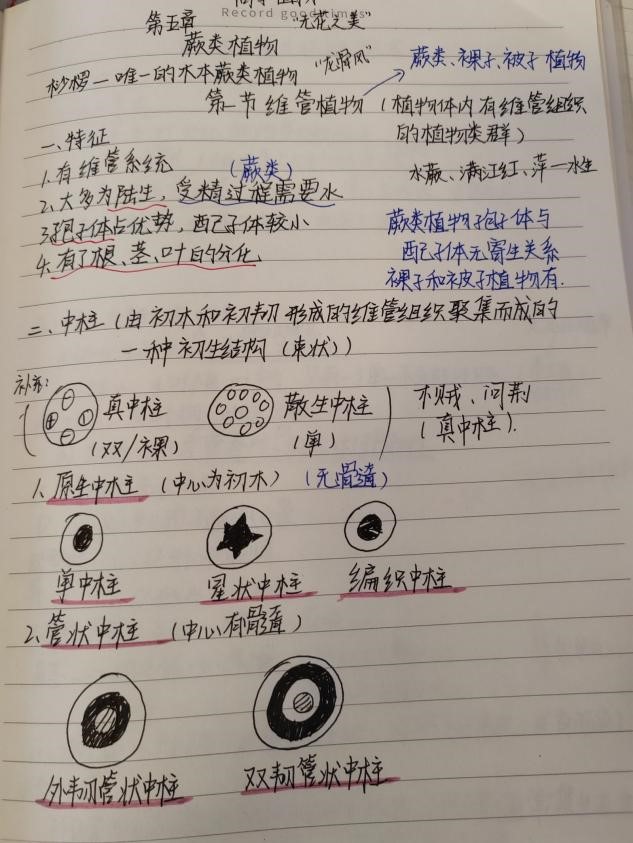 Record good times
第五章 "无花之美"
蕨类植物
桫椤—唯一的木本蕨类植物 "龙骨风" 蕨类、裸子、被子植物
第一节 维管植物 (植物体内有维管组织
的植物类群)
一、特征
1. 有维管系统 (蕨类) 水蕨、满江红、萍—水生
2. 大多为陆生, 受精过程需要水
3. 孢子体占优势, 配子体较小 蕨类植物孢子体与
配子体无寄生关系
4. 有了根、茎、叶的分化 裸子和被子植物有.
二、中柱 (由初木和初韧形成的维管组织聚集而成的
一种初生结构 (束状))
补充:
真中柱 散生中柱 木贼、问荆
(双/裸) (单) (真中柱).
1. 原生中柱 (中心为初木) (无髓)
单中柱 星状中柱 编织中柱
2. 管状中柱 (中心有髓)
外韧管状中柱 双韧管状中柱